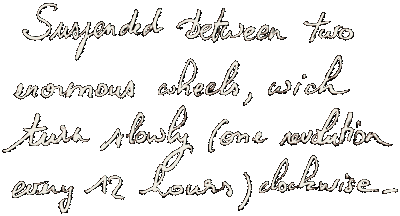 Suspended between two
enormous wheels, wich
turn slowly (one revolution
every 12 hours) clockwise-